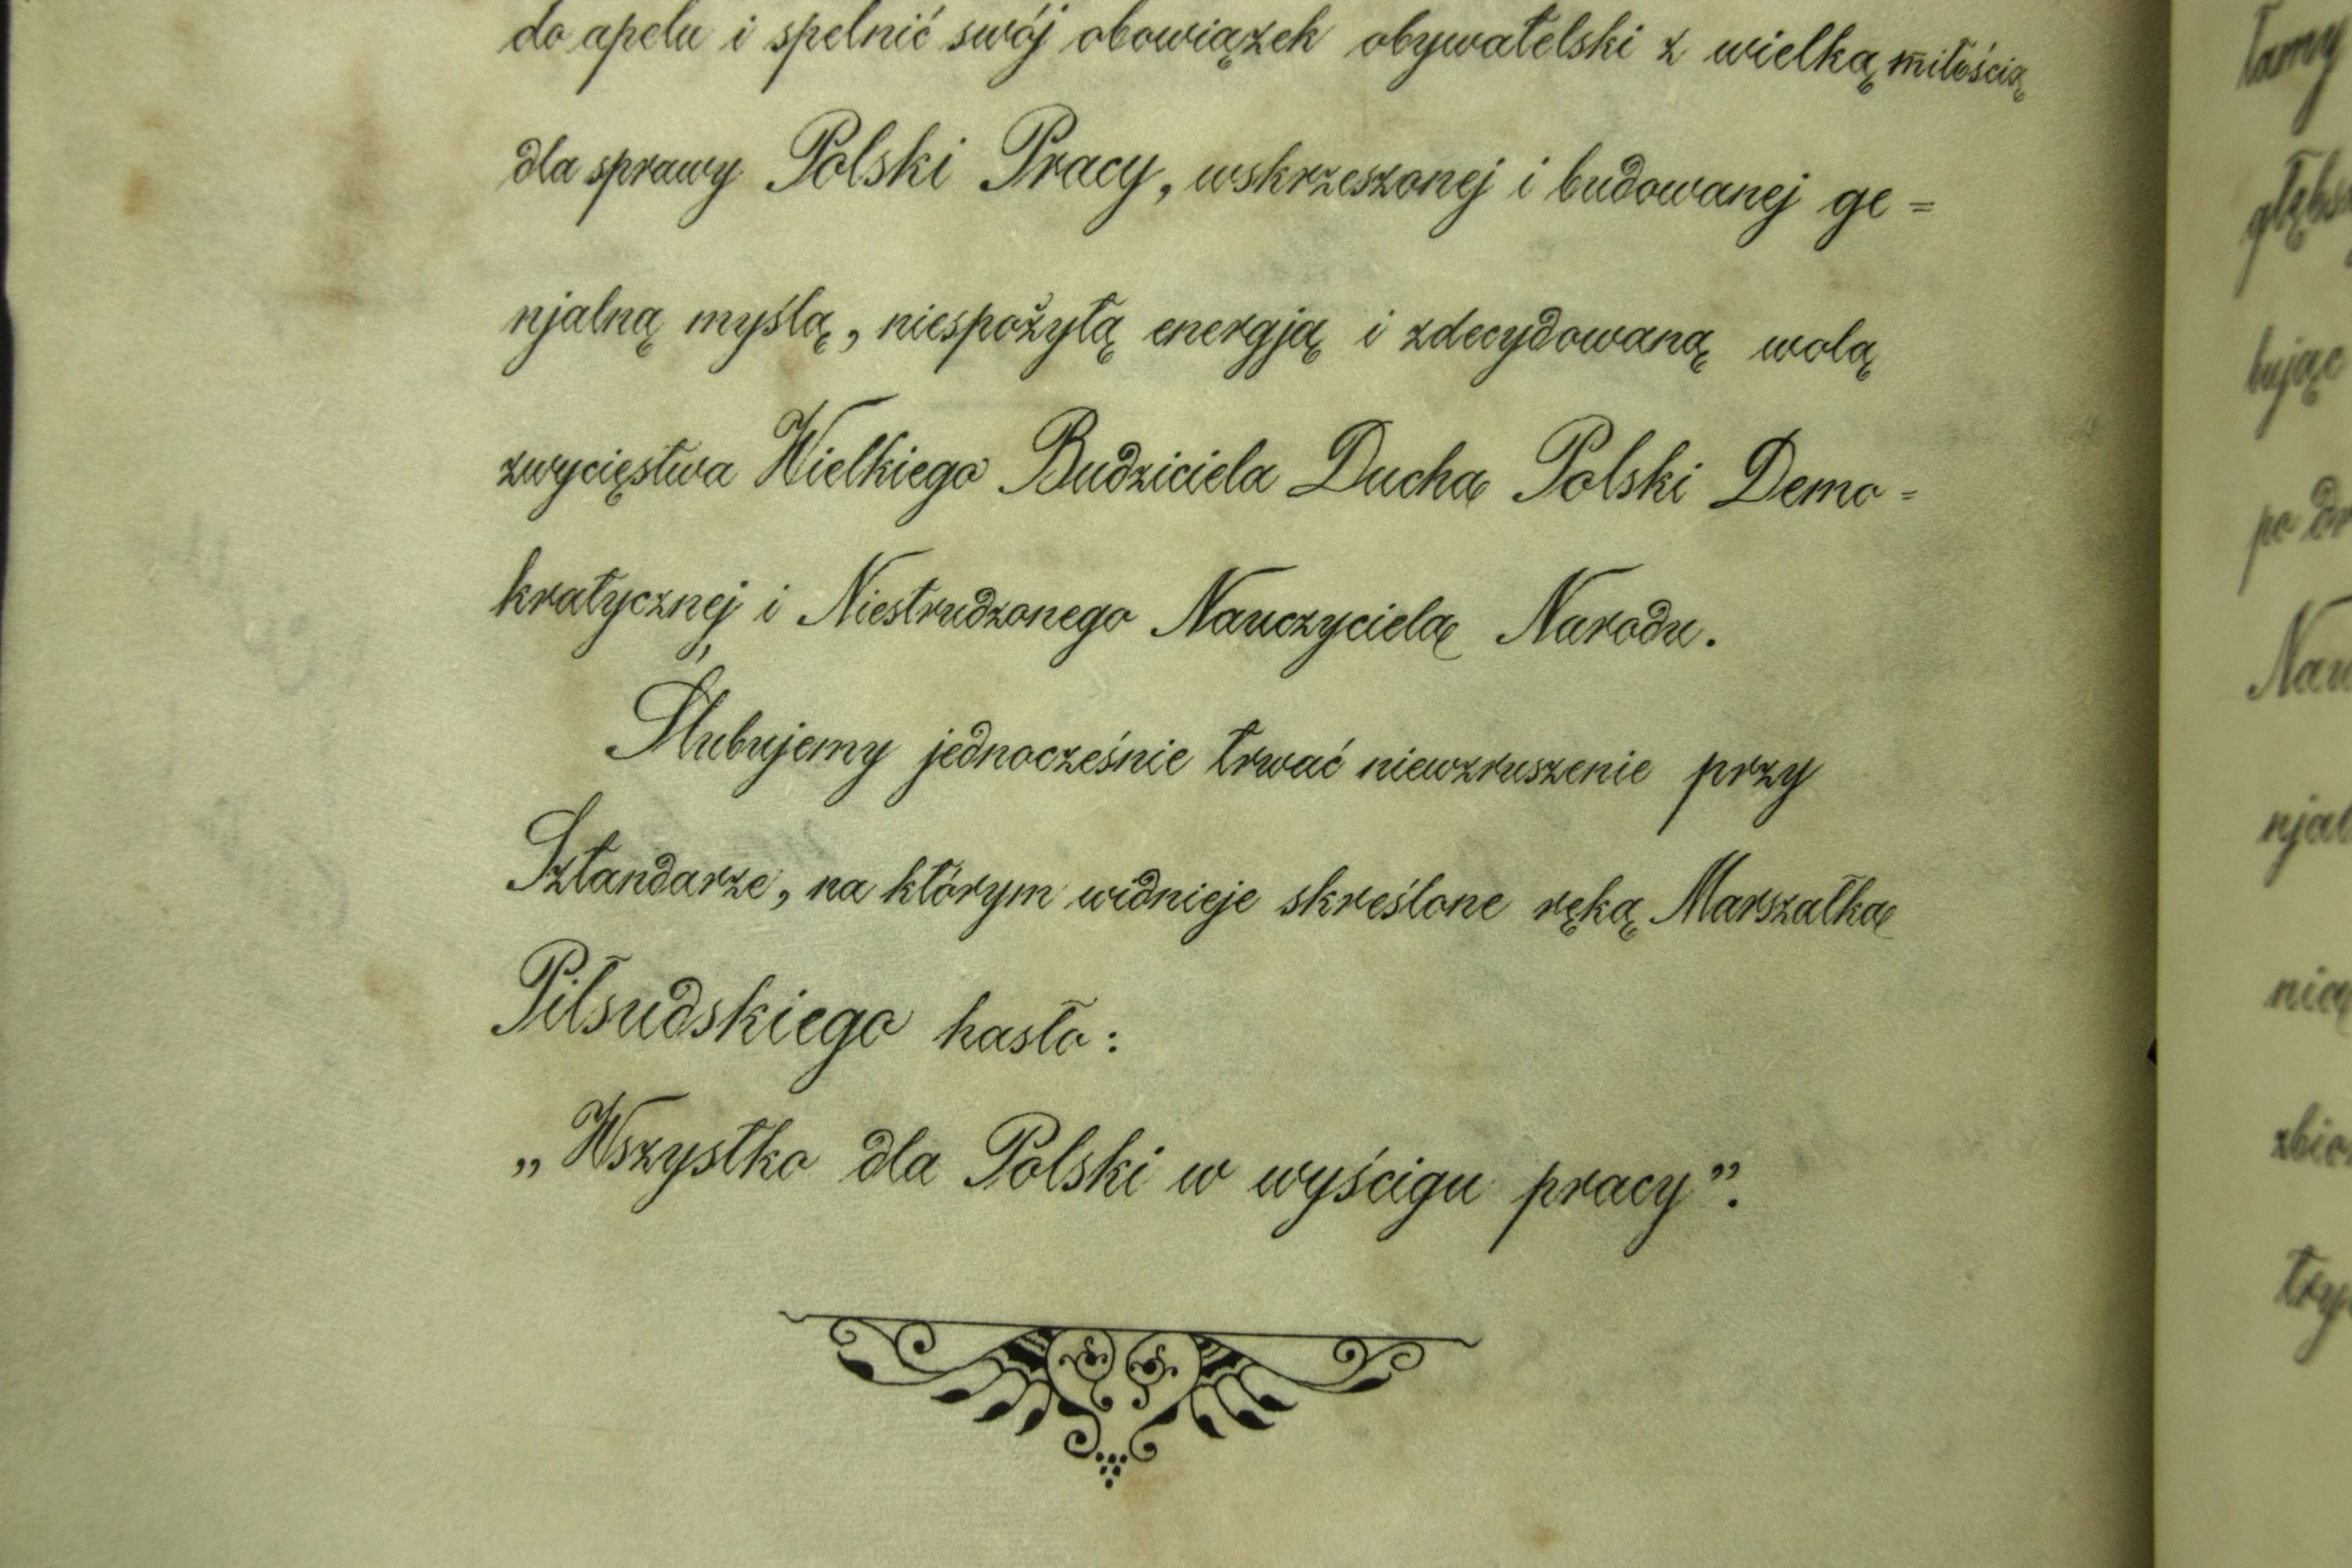 do apelu i spełnić swój obowiązek obywatelski z wielką miłością
dla sprawy Polski Pracy, wskrzeszonej i budowanej ge=
njalną myślą, niespożytą energją i zdecydowaną wolą
zwycięstwa Wielkiego Budziciela Ducha Polski Demo=
kratycznej i Niestrudzonego Nauczyciela Narodu.
Ślubujemy jednocześnie trwać niewzruszenie przy
Sztandarze, na którym widnieje skreślone ręką Marszałka
Piłsudskiego hasło:
„Wszystko dla Polski w wyścigu pracy”.